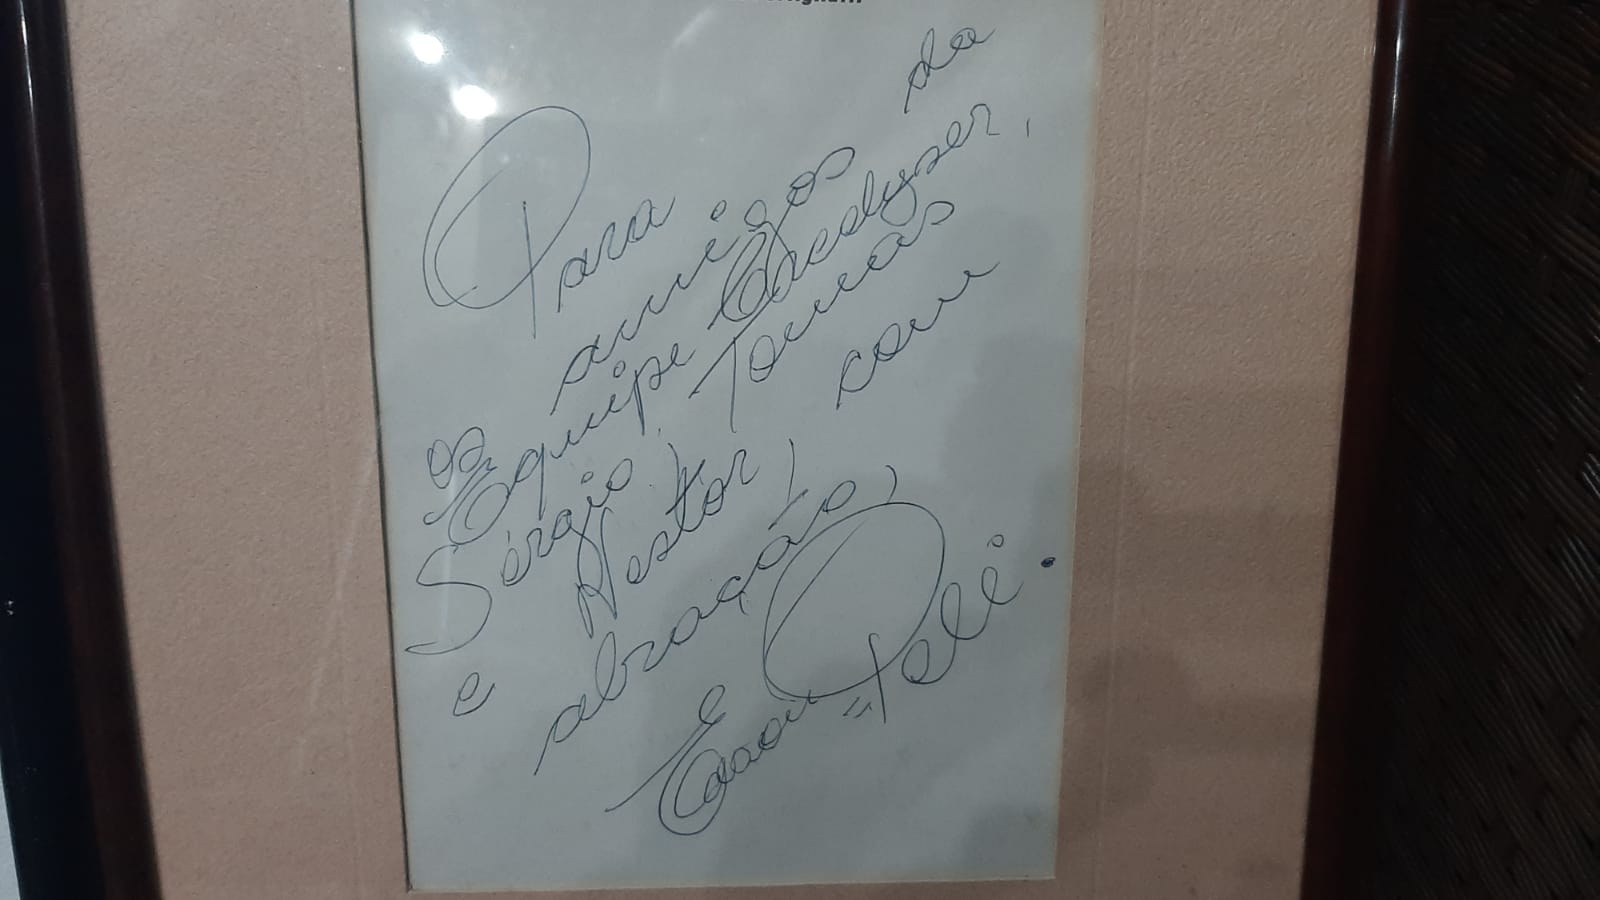 Para
os amigos da
Equipe
Sérgio, Tomas
e Nestor, com
abração,
Edson Pelé.